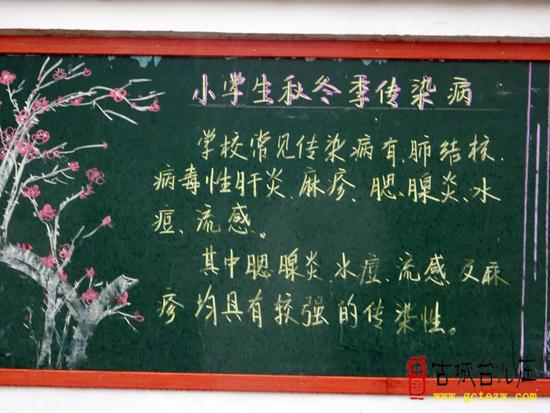 小学生秋冬季传染病
学校常见传染病有、肺结核、
病毒性肝炎、麻疹、腮腺炎、水
痘、流感。
其中腮腺炎、水痘、流感、及麻
疹均具有较强的传染性。
中国
古城台儿庄
www.gctezw.com